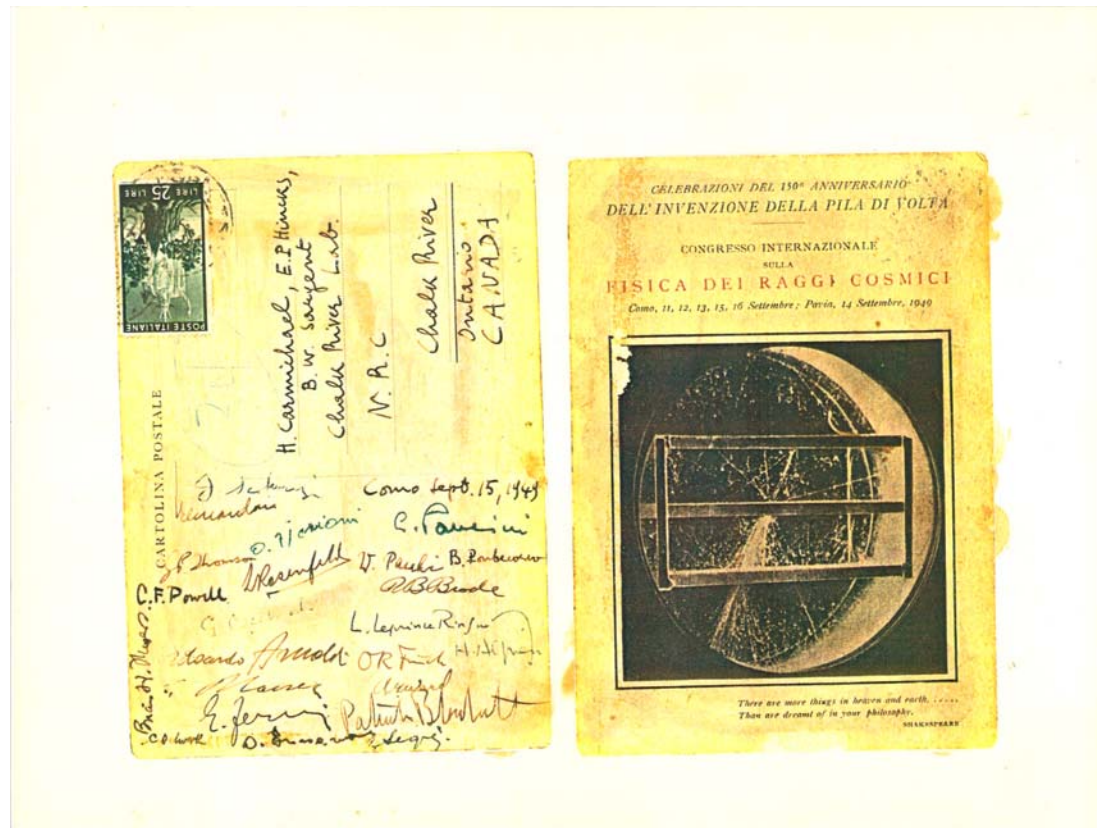 LIRE 25 LIRE
POSTE ITALIANE
CARTOLINA POSTALE
H. Carmichael, E.P. Hincks,
B. W. Sargent
Chalk River Lab.
N. R. C
Chalk River
Ontario
CANADA
Como Sept. 15, 1949
O. Piccioni
W. Pauli B. Pontecorvo
L Rosenfeld
R B Brode
C.F. Powell
L. Leprince Ringuet
Edoardo Amaldi O R Frisch
E. Fermi
Patrick Blackett
Segrè.
CELEBRAZIONI DEL 150° ANNIVERSARIO
DELL'INVENZIONE DELLA PILA DI VOLTA
CONGRESSO INTERNAZIONALE
SULLA
FISICA DEI RAGGI COSMICI
Como, 11, 12, 13, 15, 16 Settembre; Pavia, 14 Settembre, 1949
There are more things in heaven and earth, .....
Than are dreamt of in your philosophy.
SHAKESPEARE